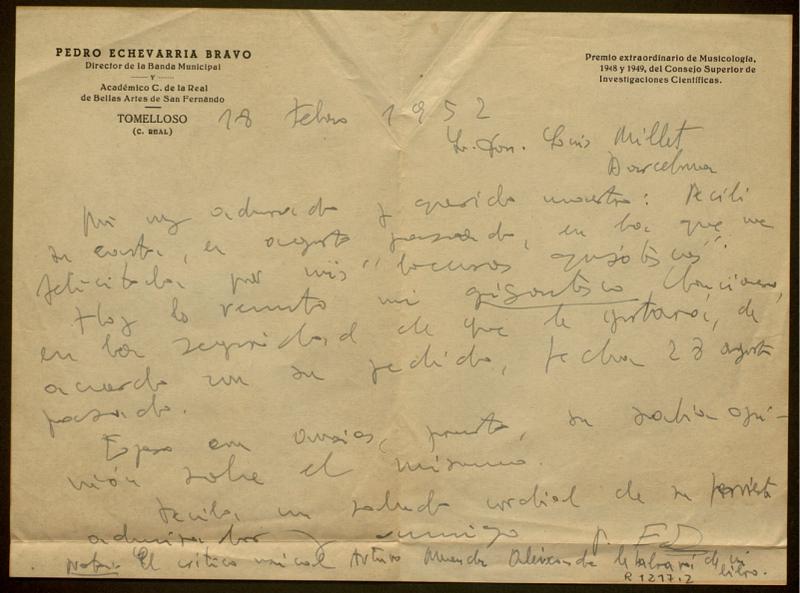 PEDRO ECHEVARRIA BRAVO
Director de la Banda Municipal
Y
Académico C. de la Real
de Bellas Artes de San Fernándo
TOMELLOSO
(C. REAL)
Premio extraordinario de Musicología,
1948 y 1949, del Consejo Superior de
Investigaciones Científicas.
18 Febro 1952
Sr. Don. Luis Millet
Barcelona
Mi muy admirado y querido maestro: Recibí
su carta, en agosto pasado, en la que me
felicitaba por mis "locuras quijotescas".
Hoy le remito mi gigantesco Cancionero,
en la seguridad de que le gustará, de
acuerdo con su pedido, fecha 23 agosto
pasado.
Espero con ansias, pronto, su sabia opi-
nión sobre el mismo.
Reciba un saludo cordial de su
admirador y amigo P. EB
Nota: El crítico musical Arturo Menéndez Aleixandre le hablará de mi libro.
R 1217.2